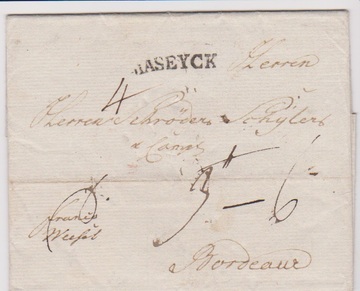 MASEYCK
Herren
4
Herren Schröder & Schÿlers
& Comp
franco
Wesel
3 – 6
Bordeaux